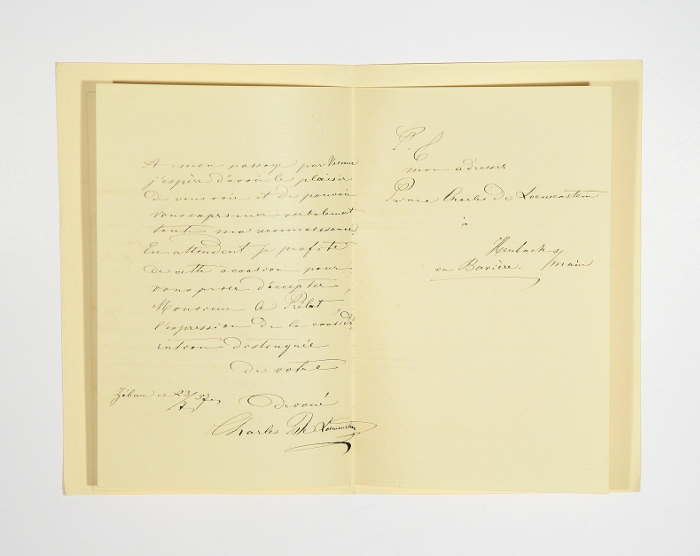 A mon passage par Vienne
j'espère d'avoir le plaisir
de vous voir et de pouvoir
vous exprimer verbalement
toute ma reconnaissance.
En attendant je profite
de cette occasion pour
vous prier d'accepter,
Monsieur le Prélat
l'expression de la considé
ration distinguée
de votre
Dévoué
Charles Pr Loewenstein
P. C
mon adresse
Prince Charles de Loewenstein
à
Heubach s/main
en Bavière.